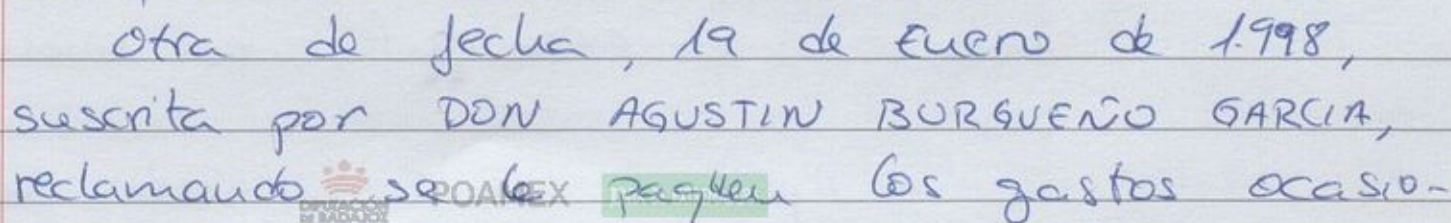 Otra de fecha, 19 de Enero de 1.998,
suscrita por DON AGUSTIN BURGUEÑO GARCIA,
reclamando se le paguen los gastos ocasio-
DIPUTACIÓN DE BADAJOZ